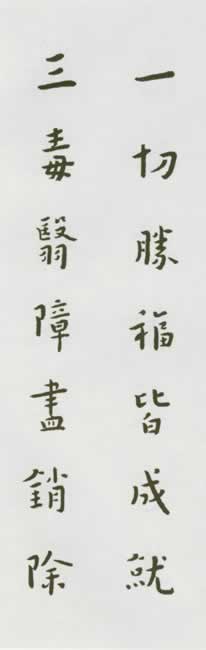 一切勝福皆成就
三毒翳障盡銷除